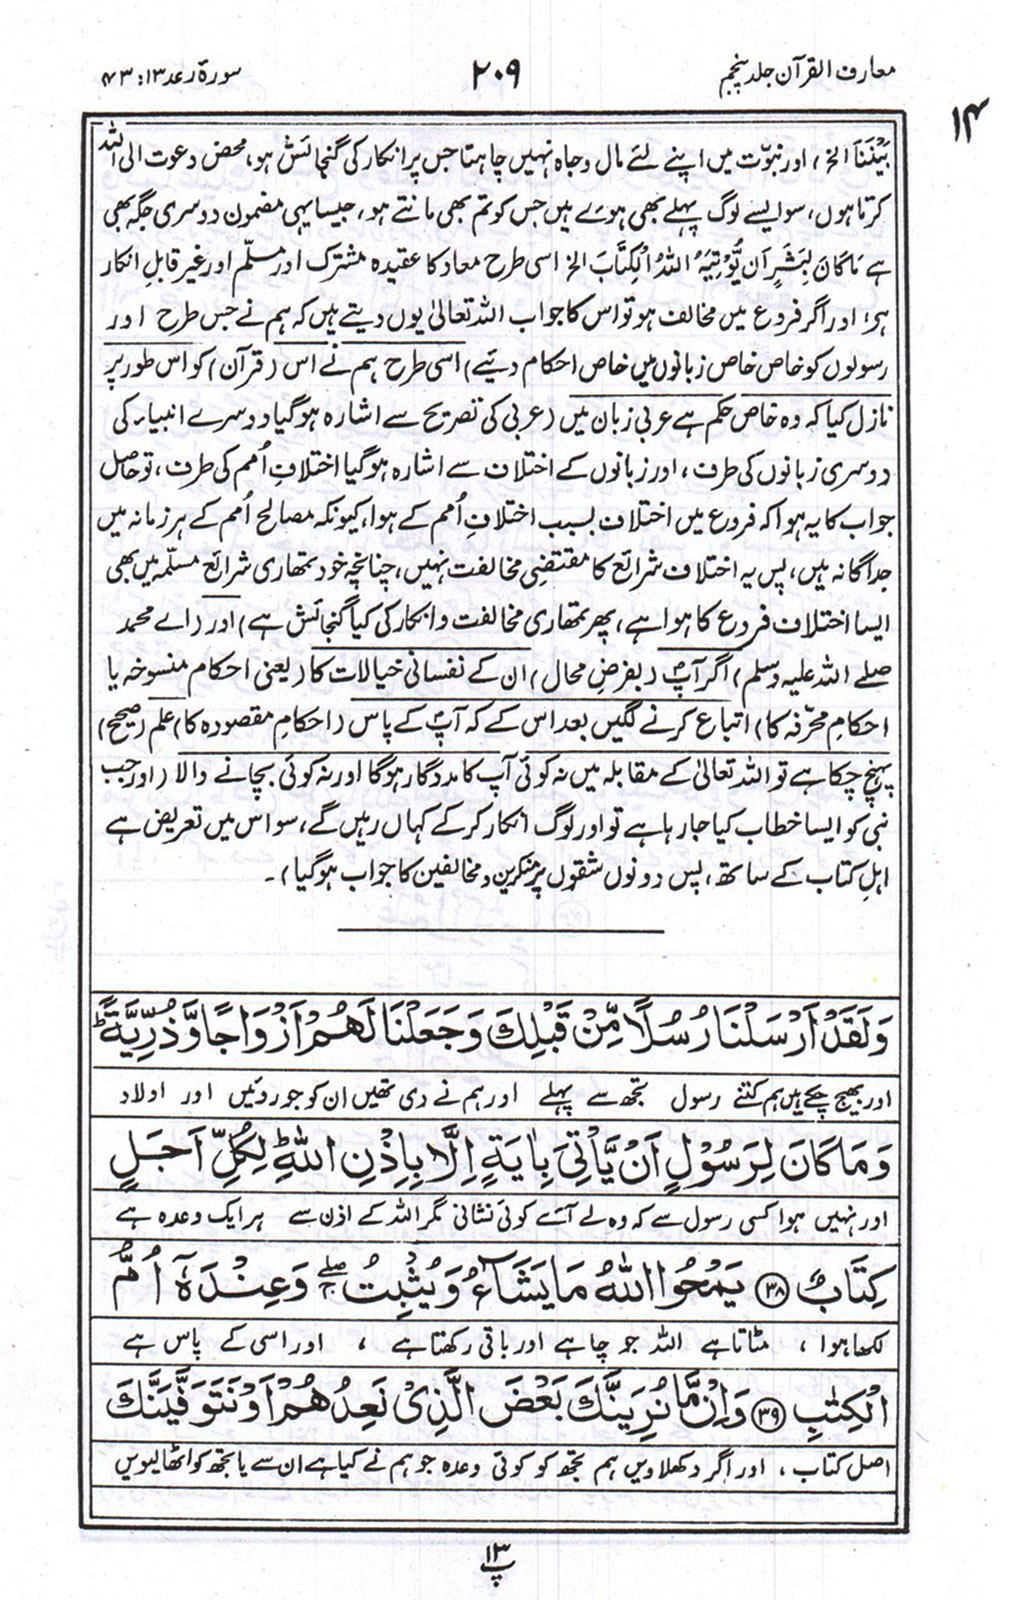 معارف القرآن جلد پنجم
۲۰۹
سورۃ رعد ۱۳: ۴۳
۱۴
بَیْنَنَا الخ، اور نبوّت میں اپنے لئے مال و جاہ نہیں چاہتا جس پر انکار کی گنجائش ہو، محض دعوت الی اللہ
کرتا ہوں، سو ایسے لوگ پہلے بھی ہوئے ہیں جس کو تم بھی مانتے ہو، جیسا یہی مضمون دوسری جگہ بھی
ہے مَا کَانَ لِبَشَرٍ اَن یُّؤْتِیَہُ اللہُ الْکِتَابَ الخ اسی طرح معاد کا عقیدہ مشترک اور مسلّم اور غیر قابلِ انکار
ہے، اور اگر فروع میں مخالف ہو تو اس کا جواب اللہ تعالیٰ یوں دیتے ہیں کہ ہم نے جس طرح اور
رسولوں کو خاص خاص زبانوں میں خاص احکام دئیے) اسی طرح ہم نے اس (قرآن) کو اس طور پر
نازل کیا کہ وہ خاص حکم ہے عربی زبان میں (عربی کی تصریح سے اشارہ ہوگیا دوسرے انبیاء کی
دوسری زبانوں کی طرف، اور زبانوں کے اختلاف سے اشارہ ہوگیا اختلافِ اُمم کی طرف، تو حاصل
جواب کا یہ ہوا کہ فروع میں اختلاف بسبب اختلافِ اُمم کے ہوا، کیونکہ مصالح اُمم کے ہر زمانہ میں
جداگانہ ہیں، پس یہ اختلاف شرائع کا مقتضیِ مخالفت نہیں، چنانچہ خود تمھاری شرائع مسلّمہ میں بھی
ایسا اختلاف فروع کا ہوا ہے، پھر تمھاری مخالفت و انکار کی کیا گنجائش ہے) اور (اے محمد
صلے اللہ علیہ وسلم) اگر آپؐ (بفرضِ محال) ان کے نفسانی خیالات کا (یعنی احکام منسوخہ یا
احکامِ محرّفہ کا) اتباع کرنے لگیں بعد اس کے کہ آپؐ کے پاس (احکامِ مقصودہ کا) علم (صحیح)
پہنچ چکا ہے تو اللہ تعالیٰ کے مقابلہ میں نہ کوئی آپ کا مددگار ہوگا اور نہ کوئی بچانے والا (اور جب
نبی کو ایسا خطاب کیا جا رہا ہے تو اور لوگ انکار کرکے کہاں رہیں گے، سو اس میں تعریض ہے
اہلِ کتاب کے ساتھ، پس دونوں شقوں پر منکرین و مخالفین کا جواب ہوگیا)۔
وَلَقَدْ اَرْسَلْنَا رُسُلًا مِّنْ قَبْلِكَ وَجَعَلْنَا لَهُمْ اَزْوَاجًا وَّذُرِّيَّةً ؕ
اور بھیج چکے ہیں ہم کتنے رسول تجھ سے پہلے اور ہم نے دی تھیں ان کو جوروئیں اور اولاد
وَمَا كَانَ لِرَسُوْلٍ اَنْ يَّاْتِيَ بِاٰيَةٍ اِلَّا بِاِذْنِ اللّٰهِ ؕ لِكُلِّ اَجَلٍ
اور نہیں ہوا کسی رسول سے کہ وہ لے آئے کوئی نشانی مگر اللہ کے اذن سے ہر ایک وعدہ ہے
كِتَابٌ ﴿۳۸﴾ يَمْحُوا اللّٰهُ مَا يَشَآءُ وَيُثْبِتُ ۖۚ وَعِنْدَهٗٓ اُمُّ
لکھا ہوا ، مٹاتا ہے اللہ جو چاہے اور باقی رکھتا ہے ، اور اسی کے پاس ہے
الْكِتٰبِ ﴿۳۹﴾ وَاِنْ مَّا نُرِيَنَّكَ بَعْضَ الَّذِيْ نَعِدُهُمْ اَوْ نَتَوَفَّيَنَّكَ
اصل کتاب ، اور اگر دکھلاویں ہم تجھ کو کوئی وعدہ جو ہم نے کیا ہے ان سے یا تجھ کو اٹھا لیویں
پ ۱۳